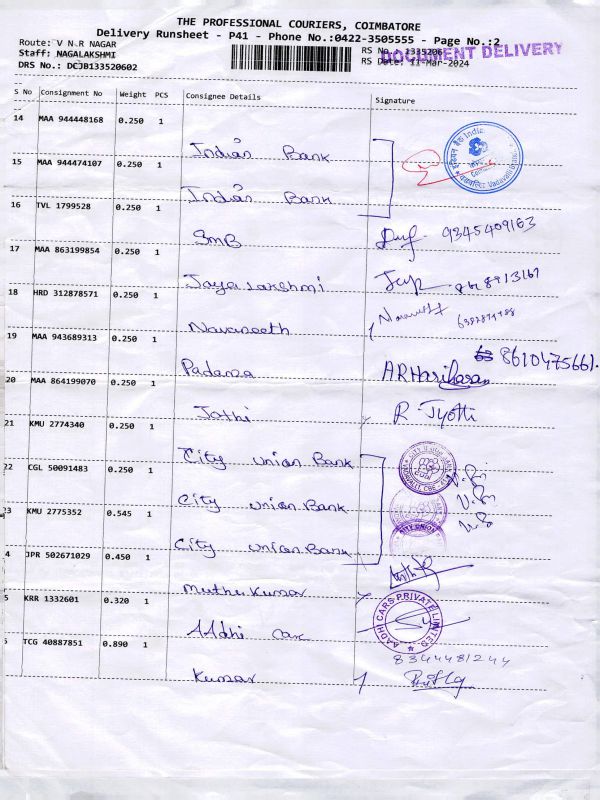 THE PROFESSIONAL COURIERS, COIMBATORE
Delivery Runsheet - P41 - Phone No.:0422-3505555 - Page No.:2
Route: V N.R NAGAR
Staff: NAGALAKSHMI
DRS No.: DCJB133520602
RS No. 1335206
RS Date: 11-Mar-2024
DOCUMENT DELIVERY
S No Consignment No Weight PCS Consignee Details Signature
14 MAA 944448168 0.250 1
Indian Bank
15 MAA 944474107 0.250 1
Indian Bank
16 TVL 1799528 0.250 1
SMB 9345409163
17 MAA 863199854 0.250 1
Jayalakshmi
18 HRD 312878571 0.250 1
Navaneeth
19 MAA 943689313 0.250 1
Padarsa ARHariharan 8610475661.
20 MAA 864199070 0.250 1
Jothi R-Jyothi
21 KMU 2774340 0.250 1
City union Bank
22 CGL 50091483 0.250 1
City union Bank
23 KMU 2775352 0.545 1
City union Bank
4 JPR 502671029 0.450 1
Muthu Kumar
5 KRR 1332601 0.320 1
AAdhi car
AADHI CARS PRIVATE LIMITED
6 TCG 40887851 0.890 1
8344481244
Kumar